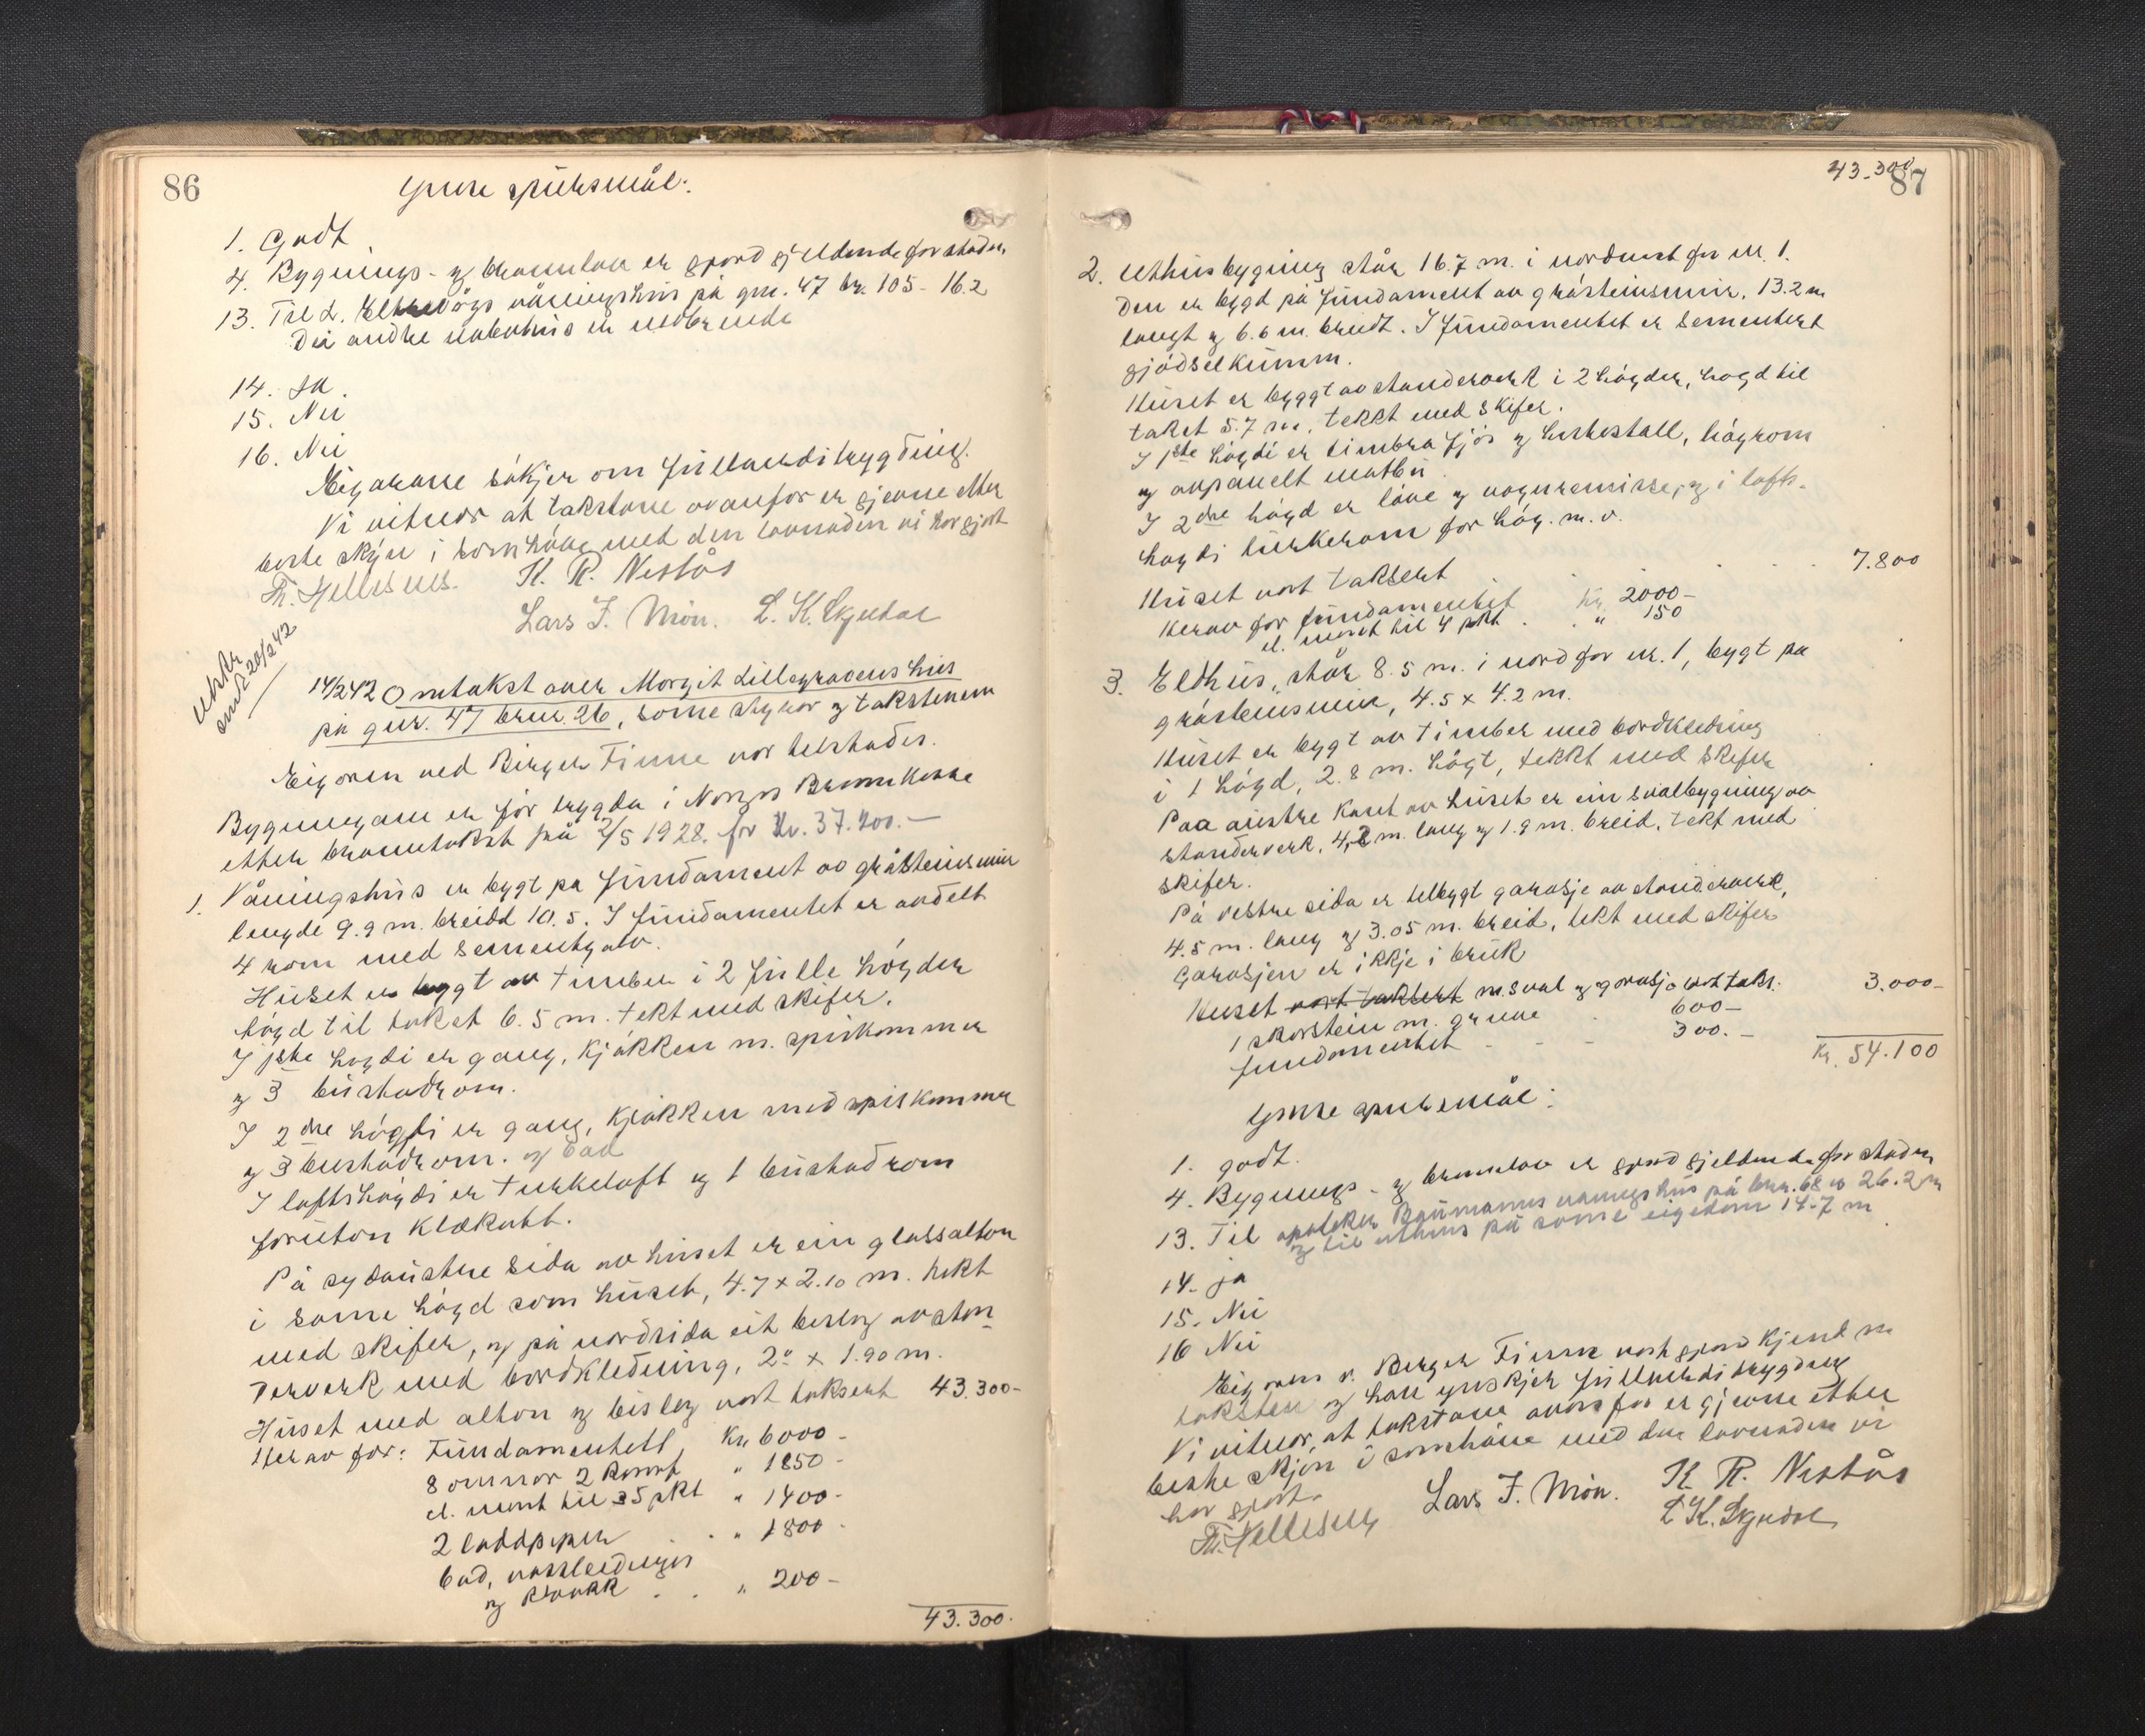 86
Ymse spursmål:
1. Godt
4. Bygnings- og brannlov er gjord gjeldande for staden
13. Til L. våningshus på gnr. 47 br. 105 - 16.2
Dei andre nabohus er uendrende
14. Ja.
15. Nei
16. Nei
Eigarane søkjer om fullverditrygding.
Vi vitnar at takstane ovanfor er gjevne etter
beste skjøn i samhøve med den lovnaden vi har gjort
Th. Hellesnes. K. R. Nestås
Lars J. Møn. L. K. Skjeldal
Utskr.
send 20/2 42
14/2 42 Omtakst over Margit Lillegravens hus
på gnr. 47 brnr. 26, some skjøn og takstmenn
Eigaren ved Birger Finne var tilstades.
Bygningane er før trygda i Norges Brannkasse
etter branntakst på 2/5 1928. for Kr. 37.400.-
1. Våningshus er bygt på fundament av gråsteinsmur
lengde 9.9 m. breidd 10.5. I fundamentet er avdelt
4 rom med sementgolv.
Huset er bygt av timber i 2 fulle høgder
høgd til taket 6.5 m. tekt med skifer.
I 1ste høgdi er gang, kjøkken m. spiskammer
og 3 bustadrom.
I 2dre høgdi er gang, kjøkken med spiskammer
og 3 bustadrom. og bad
I loftshøgdi er turkeloft og 1 bustadrom
foruton klækott.
På sydaustre sida av huset er ein glassalton
i same høgd som huset, 4.7 x 2.10 m. tekt
med skifer, og på nordsida eit beslag av stan-
derverk med bordkledning, 2.0 x 1.90 m.
Huset med alton og bislag vart taksert 43.300-
Herav for: Fundamentett Kr. 6000-
8 omnar 2 komf. " 1850-
el. mont til 35 pkt " 1400-
2 laddpiper . . " 1800-
bad, vassleidningar
og kloakk . . " 200-
43.300.
43.300
87
2. Uthusbygning står 16.7 m. i nordvest for nr. 1.
Den er bygd på fundament av gråsteinsmur. 13.2 m
langt og 6.6 m. breidt. I fundamentet er sementert
gjødselkumm.
Huset er byggt av standerverk i 2 høgder, høgd til
taket 5.7 m. tekkt med skifer.
I 1ste høgdi er timbra fjøs og hestestall, høyrom
og avpanelt matbu.
I 2dre høgd er låve og vognremisse, og i lofts-
høgdi turkerom for høy. m. v.
Huset vart taksert . . . 7.800
Herav for fundamentet Kr. 2000-
el. mont til 4 pkt . . " 150
3. Eldhus, står 8.5 m. i nord for nr. 1, bygt på
gråsteinsmur, 4.5 x 4.2 m.
Huset er bygt av timber med bordkledning
i 1 høgd, 2.8 m. høgt, tekkt med skifer
Paa austre kant av huset er ein svalbygning av
standerverk, 4,2 m. lang og 1.9 m. breid, tekt med
skifer.
På vestre sida er tilbygt garasje av standerverk,
4.5 m. lang og 3.05 m. breid, tekt med skifer
Garasjen er ikkje i bruk
Huset vart taksert m. sval og garasje vart taks. 3.000-
1 skorstein m. grune 600-
fundamentet - - - 300.-
Kr. 54.100
Ymse spursmål:
1. godt.
4. Bygnings- og brannlov er gjord gjeldende for staden
13. Til apoteker Baumanns vaningshus på bnr. 68 er 26.2 m
og til uthus på same eigedom 14.7 m
14. ja
15. Nei
16 Nei
Eigaren v. Birger Finne vart gjord kjend m
taksten og han ynskjer fullverditrygding
Vi vitnar, at takstane ovanfor er gjevne etter
beste skjøn i samhøve med den lovnaden vi
har gjort.
Th. Hellesnes Lars J. Møn. K. R. Nestås
L K. Skjeldal